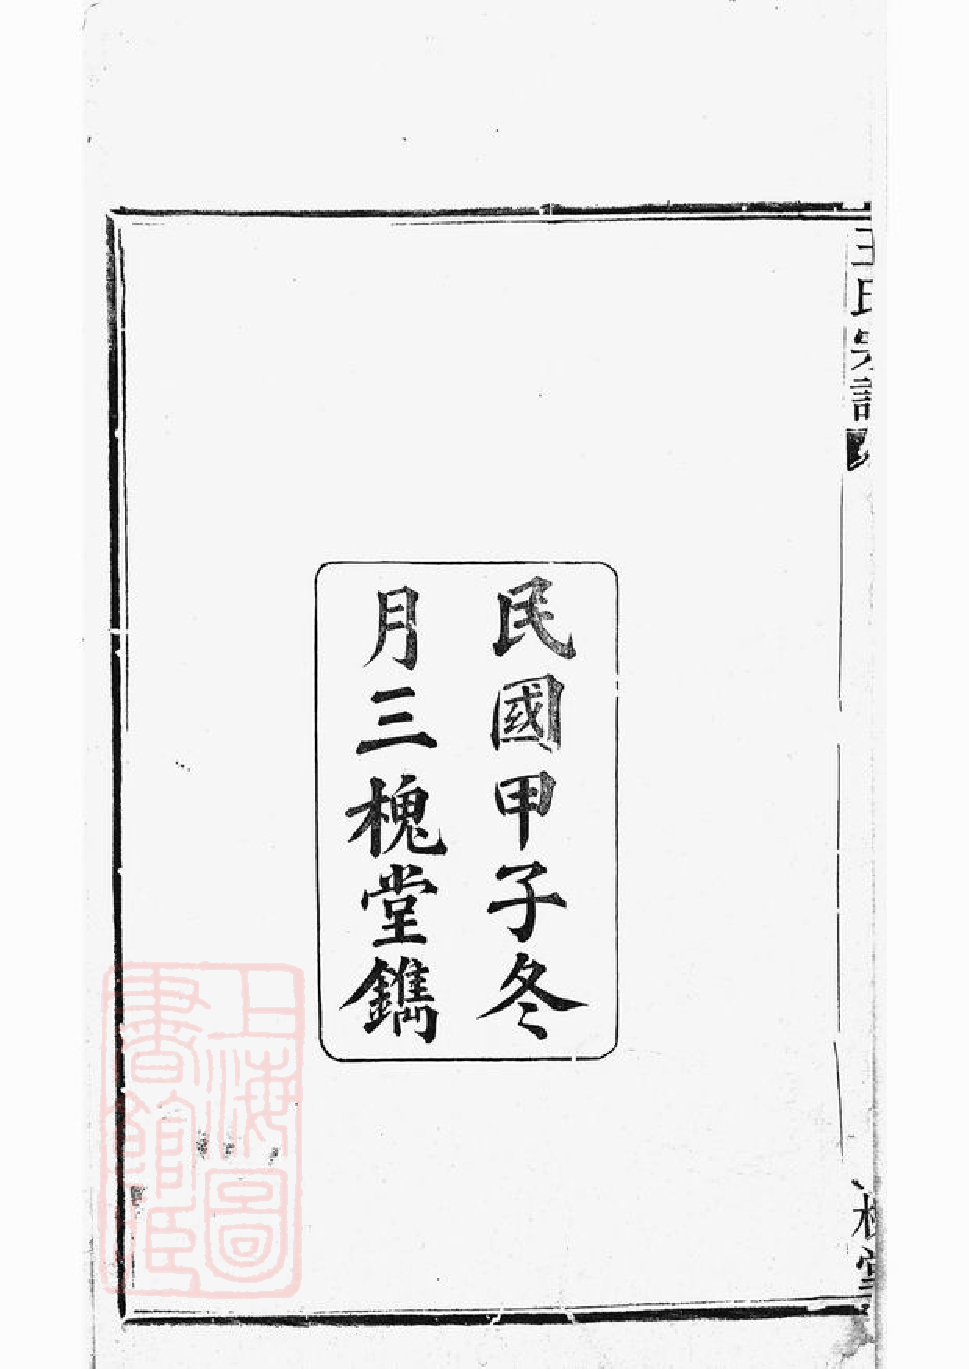 王氏宗譜
民國甲子冬
月三槐堂鐫
槐堂
上海圖
書館藏